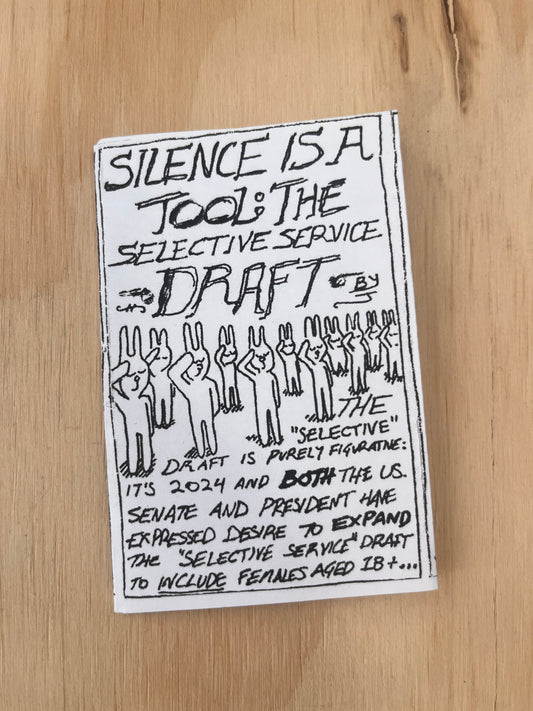 SILENCE IS A
TOOL: THE
SELECTIVE SERVICE
DRAFT BY
J
THE
"SELECTIVE"
DRAFT IS PURELY FIGURATIVE:
IT'S 2024 AND BOTH THE U.S.
SENATE AND PRESIDENT HAVE
EXPRESSED DESIRE TO EXPAND
THE "SELECTIVE SERVICE" DRAFT
TO INCLUDE FEMALES AGED 18+...